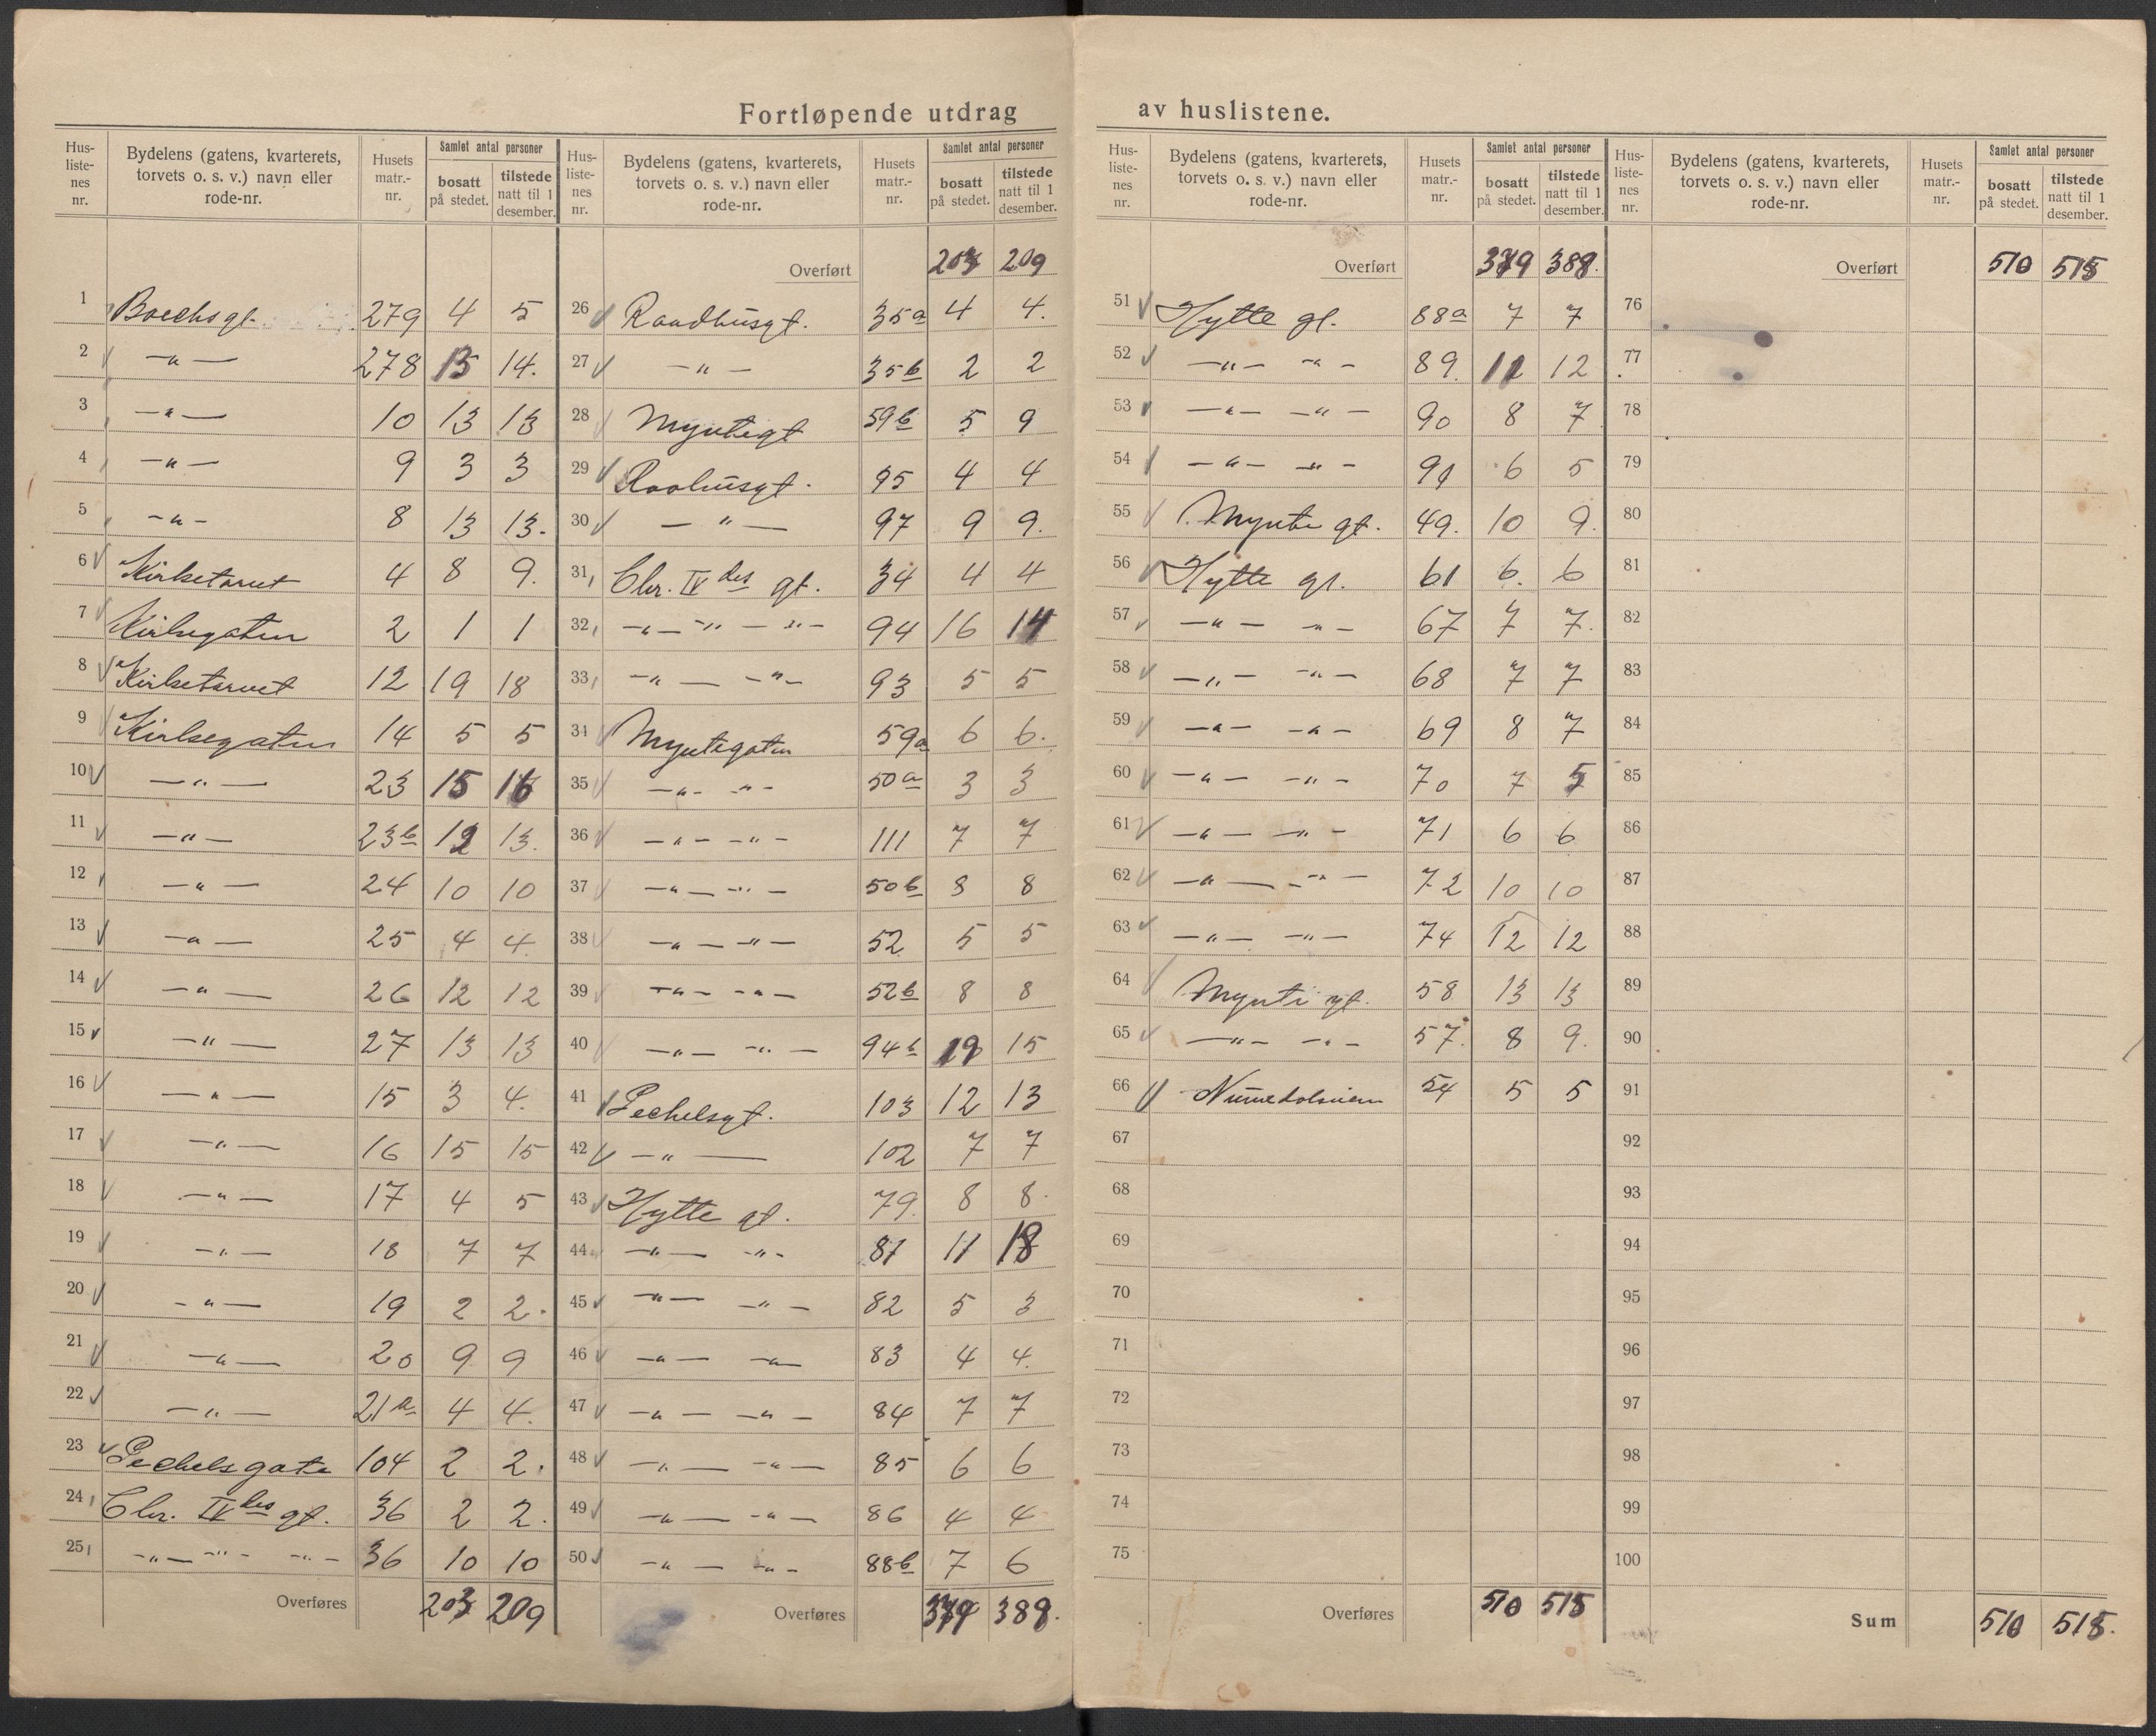 Fortløpende utdrag av huslistene.
Hus-liste-nes nr. | Bydelens (gatens, kvarterets, torvets o. s. v.) navn eller rode-nr. | Husets matr.-nr. | Samlet antal personer | bosatt på stedet. | tilstede natt til 1 desember.
1 Boechsgt. 279 4 5
2 —"— 278 15 14.
3 —"— 10 13 13
4 —"— 9 3 3
5 —"— 8 13 13.
6 Kirketorvet 4 8 9.
7 Kirkegaten 2 1 1
8 Kirketorvet 12 19 18
9 Kirkegaten 14 5 5
10 —"— 23 15 16
11 —"— 23b 12 13.
12 —"— 24 10 10
13 —"— 25 4 4
14 —"— 26 12 12
15 —"— 27 13 13
16 —"— 15 3 4.
17 —"— 16 15 15
18 —"— 17 4 5
19 —"— 18 7 7
20 —"— 19 2 2.
21 —"— 20 9 9
22 —"— 21a 4 4.
23 Pechelsgate 104 2 2.
24 Chr. IVdes gt. 36 2 2.
25 —"— —"— —"— 36 10 10
Overføres 203 209
Hus-liste-nes nr. | Bydelens (gatens, kvarterets, torvets o. s. v.) navn eller rode-nr. | Husets matr.-nr. | Samlet antal personer | bosatt på stedet. | tilstede natt til 1 desember.
Overført 203 209
26 Raadhusgt. 35a 4 4.
27 —"— 35b 2 2
28 Myntegt 59b 5 9
29 Raahusgt. 95 4 4
30 —"— 97 9 9.
31 Chr. IVdes gt. 34 4 4
32 —"— —"— —"— 94 16 14
33 —"— —"— 93 5 5
34 Myntegaten 59a 6 6.
35 —"— —"— 50a 3 3
36 —"— —"— 111 7 7
37 —"— —"— 50b 8 8
38 —"— —"— 52 5 5
39 —"— —"— 52b 8 8
40 —"— —"— 94b 19 15
41 Pechelsgt. 103 12 13
42 —"— 102 7 7
43 Hytte gt. 79. 8 8.
44 —"— —"— 81 11 18
45 —"— —"— 82 5 3
46 —"— —"— 83 4 4.
47 —"— —"— 84 7 7
48 —"— —"— 85 6 6
49 —"— —"— 86 4 4
50 —"— —"— 88b 7 6
Overføres 379 388.
Hus-liste-nes nr. | Bydelens (gatens, kvarterets, torvets o. s. v.) navn eller rode-nr. | Husets matr.-nr. | Samlet antal personer | bosatt på stedet. | tilstede natt til 1 desember.
Overført 379 388.
51 Hytte gt. 88a 7 7
52 —"— —"— 89. 12 12
53 —"— —"— 90 8 7
54 —"— —"— 91 6 5
55 Mynte gt. 49. 10 9.
56 Hytte gt. 61 6. 6
57 —"— —"— 67 7 7.
58 —"— —"— 68 7 7
59 —"— —"— 69 8 7
60 —"— —"— 70 7 5
61 —"— —"— 71 6 6
62 —"— —"— 72 10 10
63 —"— —"— 74 12 12
64 Mynte gt. 58 13 13
65 —"— —"— 57. 8 9.
66 Numedalsveien 54 5 5
67
68
69
70
71
72
73
74
75
Overføres 510 515
Hus-liste-nes nr. | Bydelens (gatens, kvarterets, torvets o. s. v.) navn eller rode-nr. | Husets matr.-nr. | Samlet antal personer | bosatt på stedet. | tilstede natt til 1 desember.
Overført 510 515
76
77
78
79
80
81
82
83
84
85
86
87
88
89
90
91
92
93
94
95
96
97
98
99
100
Sum 510 515.